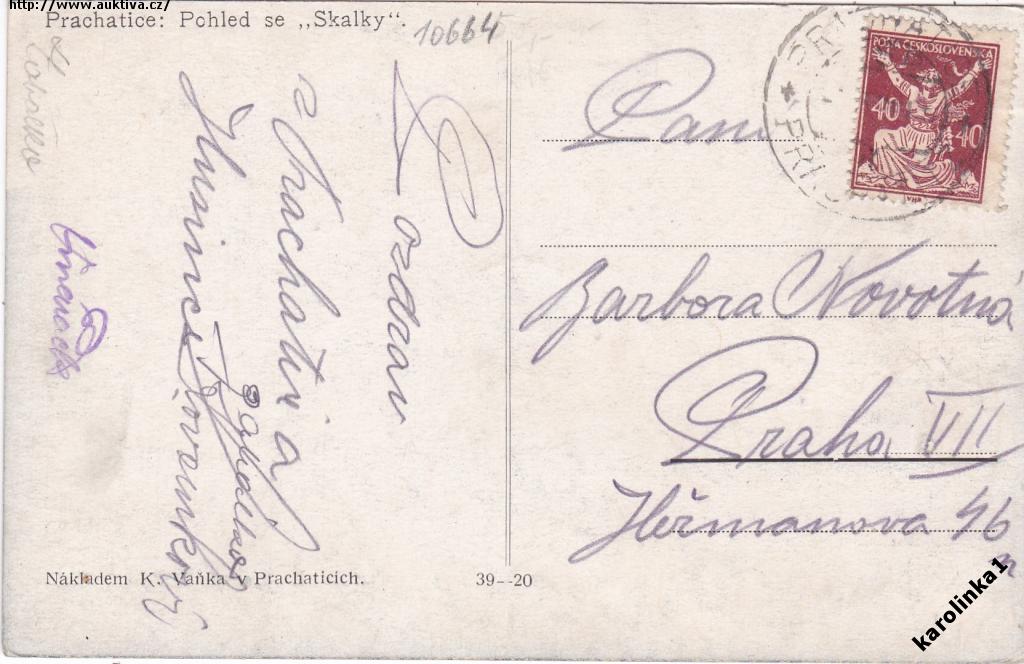 http://www.auktiva.cz/
Prachatice: Pohled se „Skalky“.
10664
Pozdrav
z Prachatic a
Husince
Paní
Barbora Novotná
Praha VII
Heřmanova 46
POŠTA ČESKOSLOVENSKÁ
40 40
Nákladem K. Vaňka v Prachaticích.
39--20
karolinka1